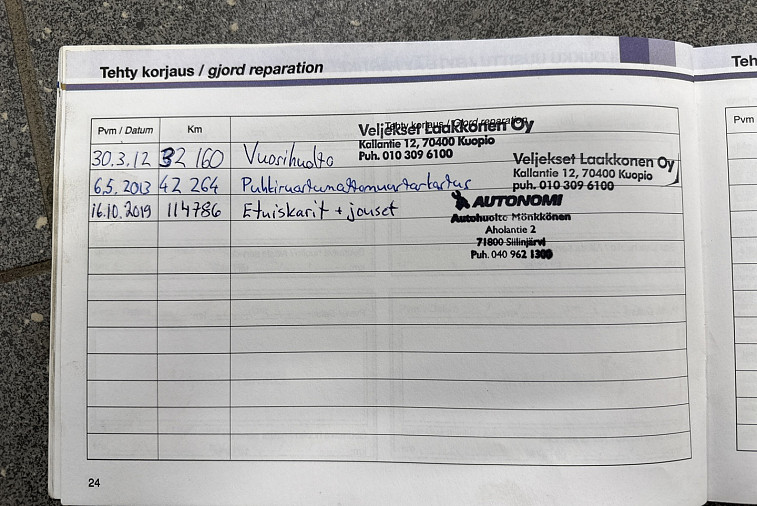 Tehty korjaus / gjord reparation
Teh
Pvm / Datum Km Tehty korjaus / Gjord reparation
Pvm
30.3.12 32 160 Vuosihuolto
Veljekset Laakkonen Oy
Kallantie 12, 70400 Kuopio
Puh. 010 309 6100
6.5.2013 42 264 Puhkiruostumattomuustarkastus
Veljekset Laakkonen Oy
Kallantie 12, 70400 Kuopio
puh. 010 309 6100
16.10.2019 114786 Etuiskarit + jouset
AUTONOMI
Autohuolto Mönkkönen
Aholantie 2
71800 Siilinjärvi
Puh. 040 962 1300
24